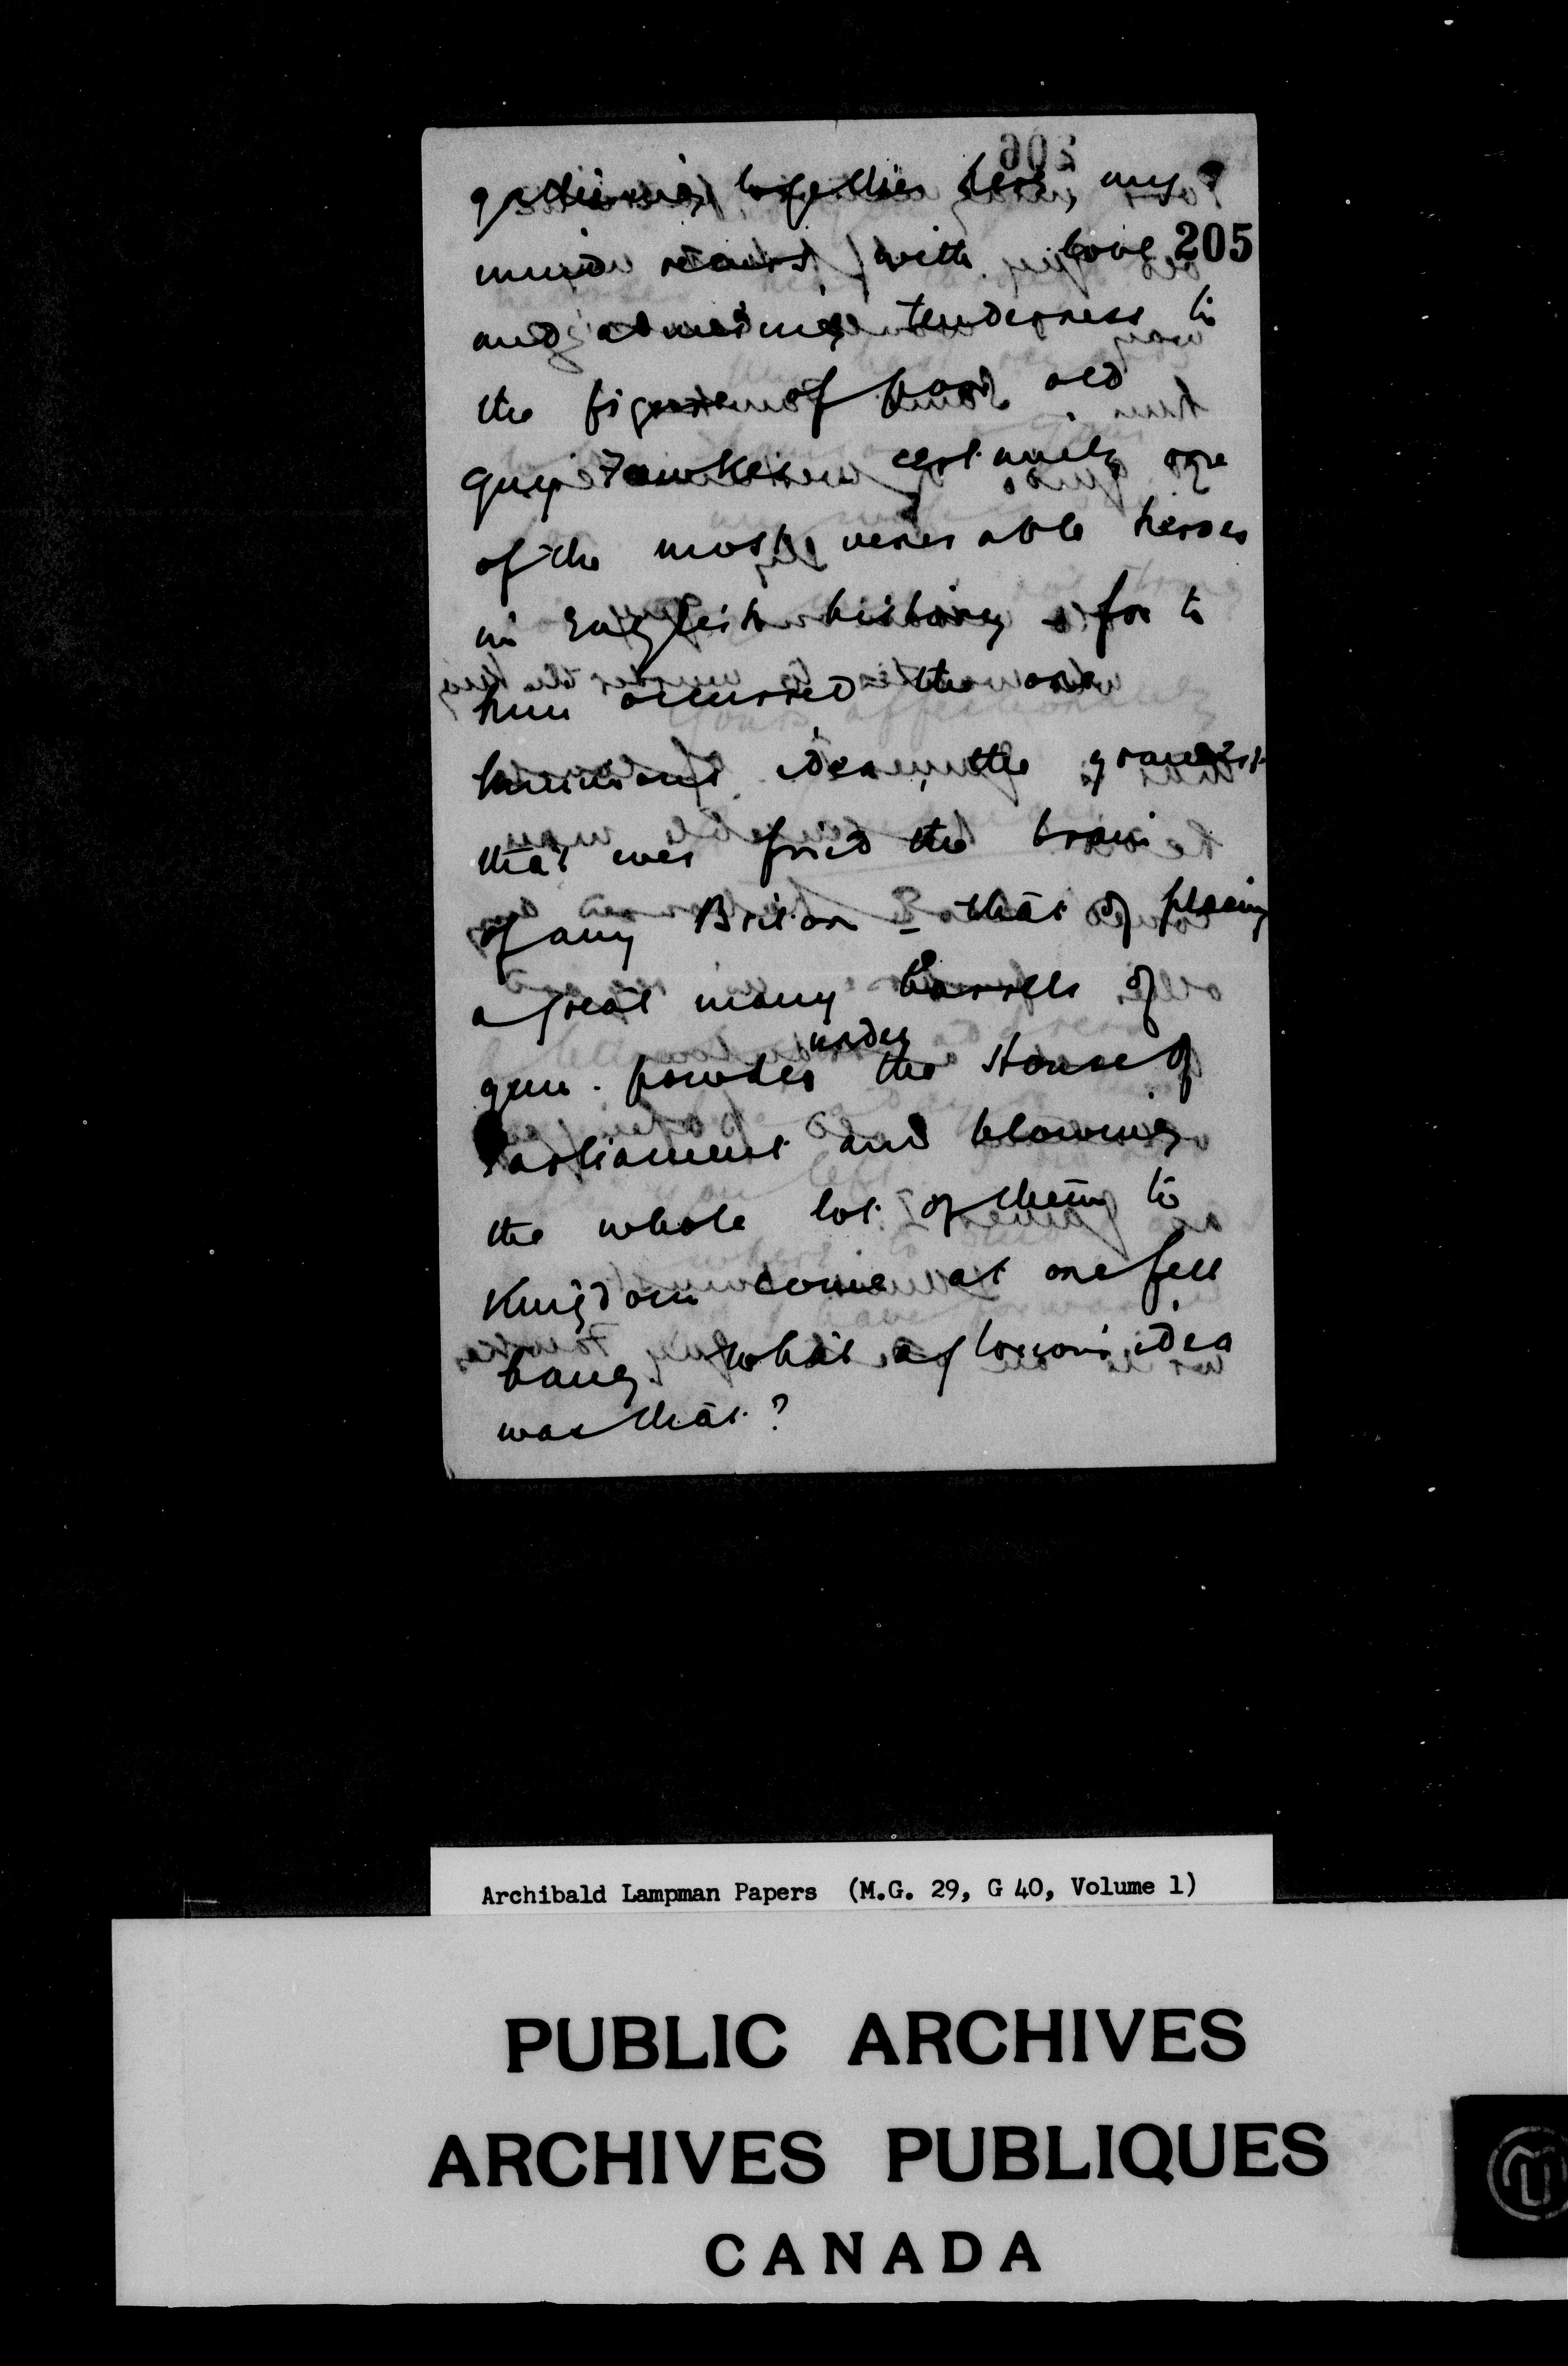 gathering together here, my
mind recurs, with love 205
and admiring tenderness to
the figure of poor old
Guy Fawkes certainly one
of the most venerable heroes
in English history, for to
him occurred the one
luminous idea, the grandest
that ever fired the brain
of any Briton - that of placing
a great many barrells of
gun-powder under the House of
Parliament and blowing
the whole lot of them to
Kingdom come at one fell
bang. What a glorious idea
was that?
Archibald Lampman Papers (M.G. 29, G 40, Volume 1)
PUBLIC ARCHIVES
ARCHIVES PUBLIQUES
CANADA